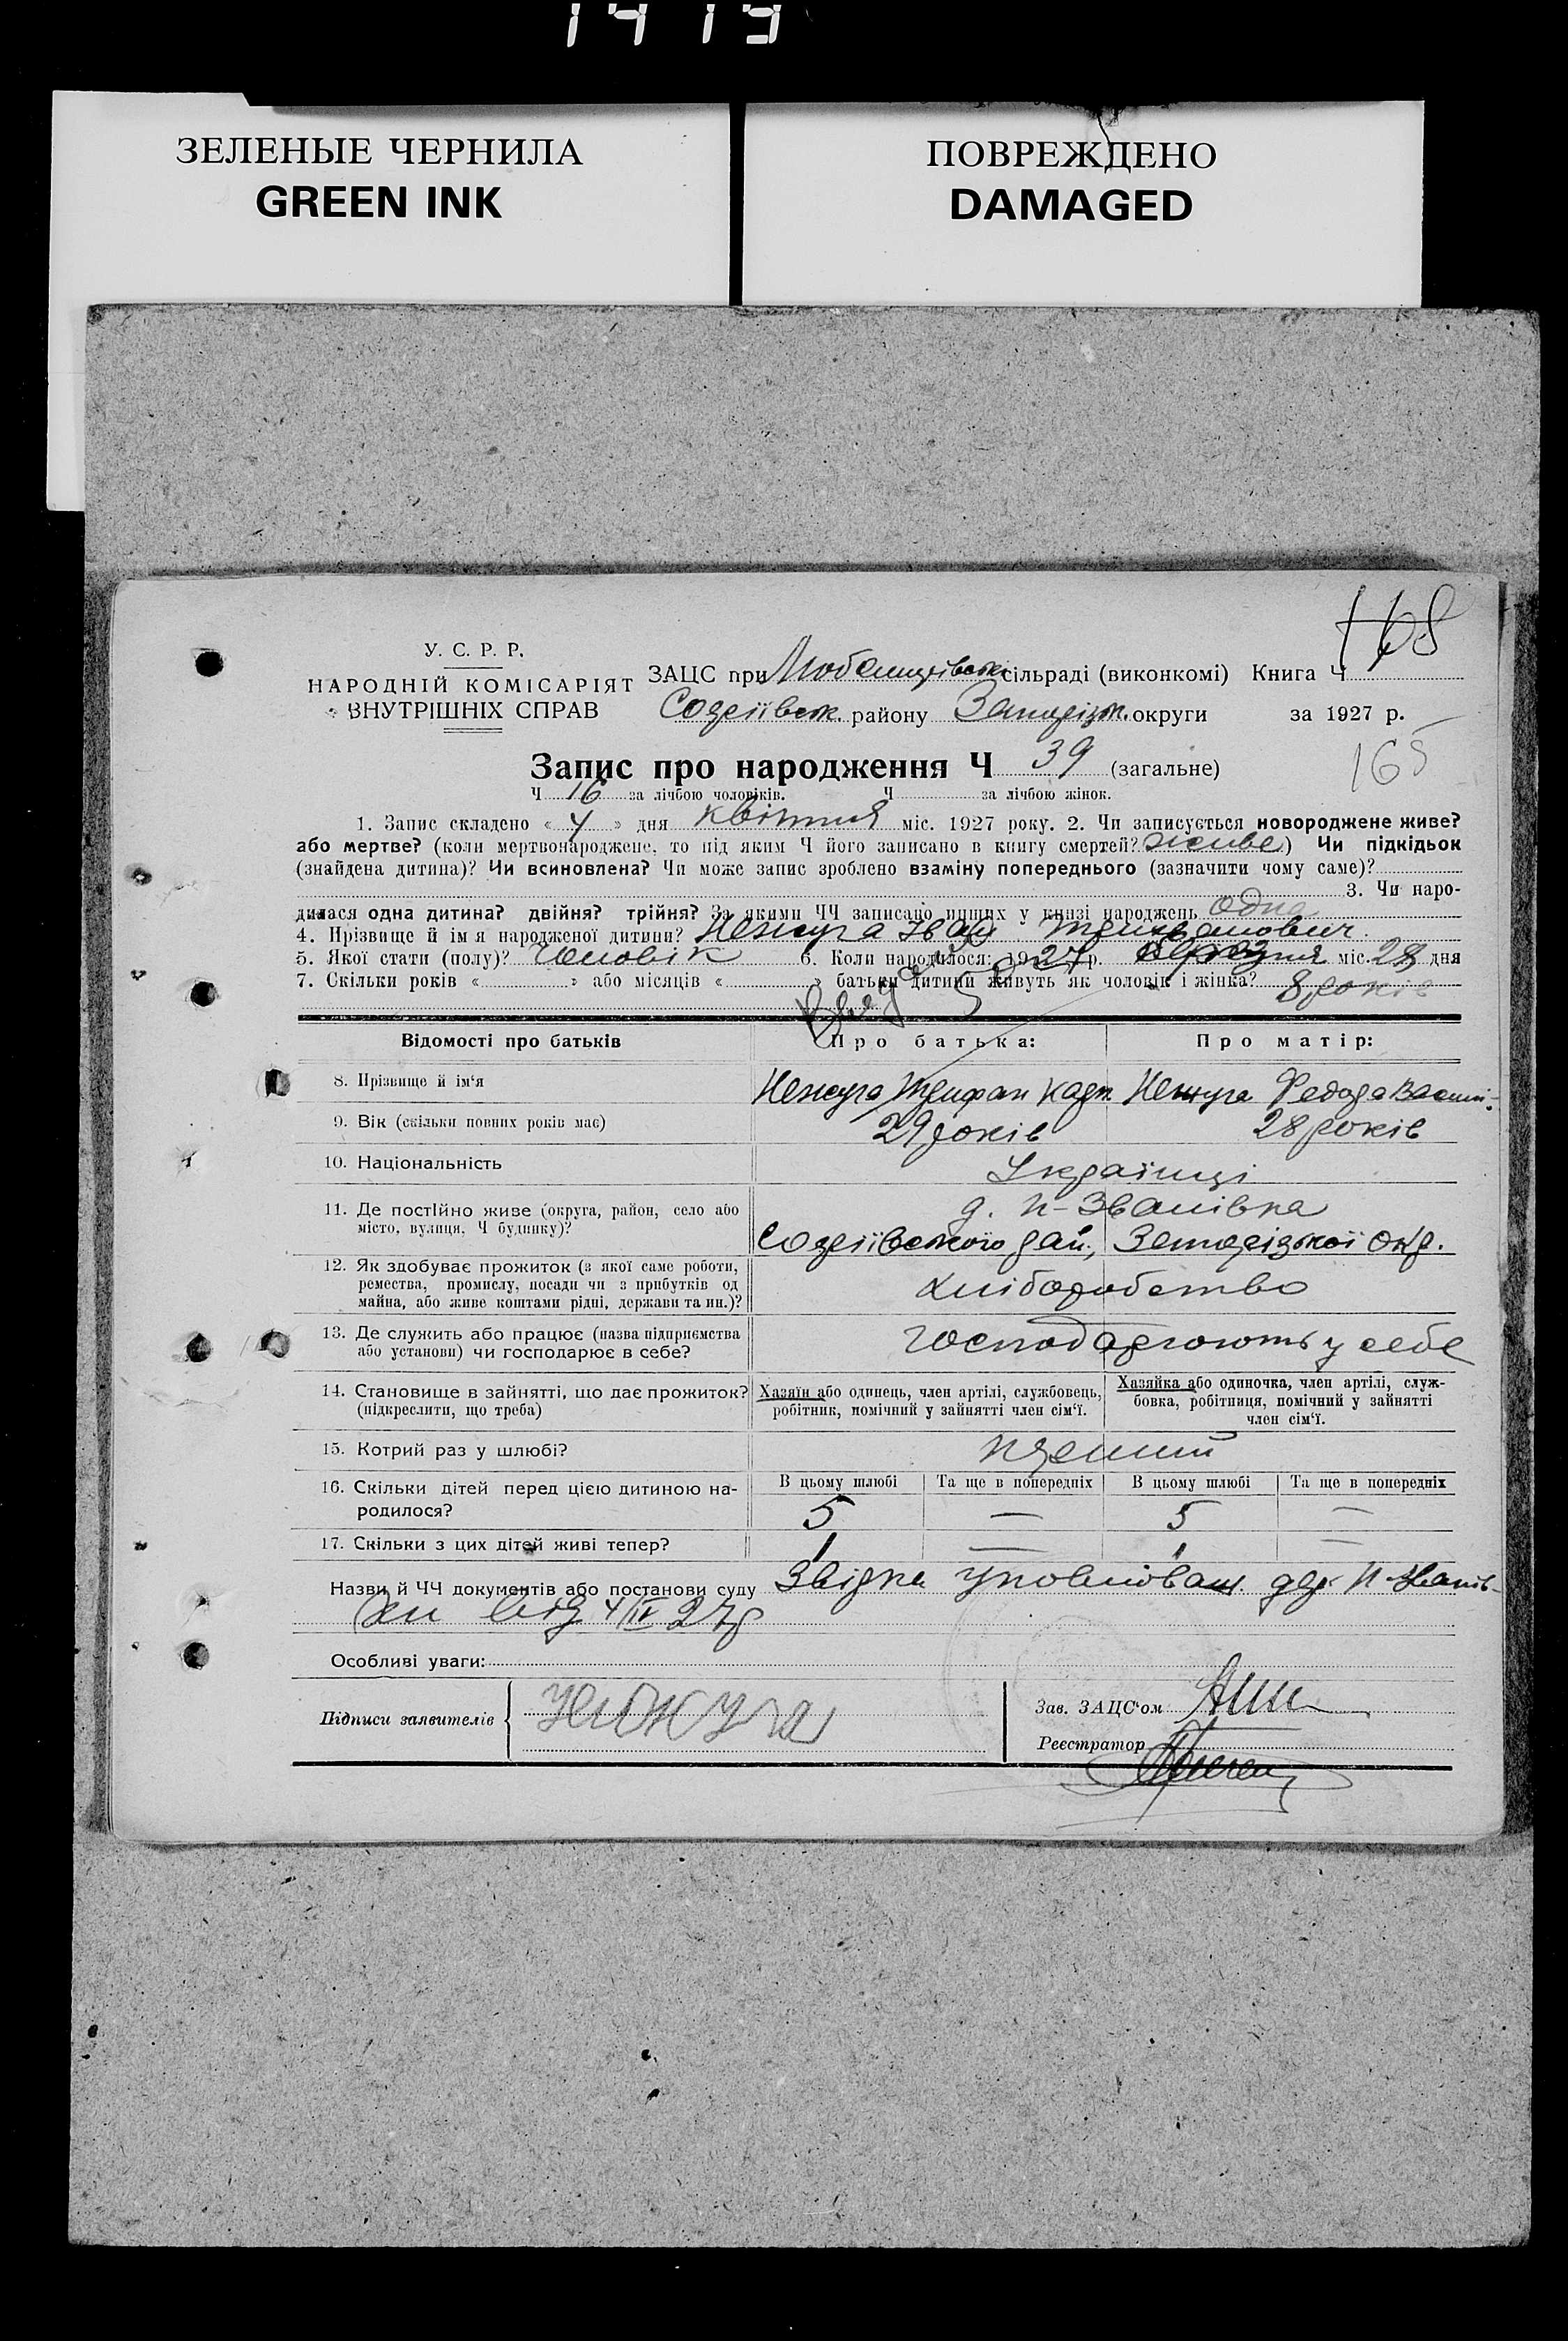 1419
ЗЕЛЕНЫЕ ЧЕРНИЛА
GREEN INK
ПОВРЕЖДЕНО
DAMAGED
168
У. С. Р. Р.
НАРОДНІЙ КОМІСАРІЯТ
ВНУТРІШНІХ СПРАВ
ЗАЦС при сільраді (виконкомі) Книга Ч
району Запоріжж. округи за 1927 р.
165
Запис про народження Ч 39 (загальне)
Ч 16 за лічбою чоловіків. Ч за лічбою жінок.
1. Запис складено « 4 » дня квітня міс. 1927 року. 2. Чи записується новороджене живе?
або мертве? (коли мертвонароджене, то під яким Ч його записано в книгу смертей? живе) Чи підкідьок
(знайдена дитина)? Чи всиновлена? Чи може запис зроблено взаміну попереднього (зазначити чому саме)?
3. Чи наро-
дилася одна дитина? двійня? трійня? За якими ЧЧ записано инших у книзі народжень одна
4. Прізвище й ім'я народженої дитини? Нежура Іван Трихванович
5. Якої стати (полу)? Чоловік 6. Коли народилося: 1927 р. міс. 28 дня
7. Скільки років « » або місяців « » батьки дитини живуть як чоловік і жінка? 8 років
Відомості про батьків
Про батька:
Про матір:
8. Прізвище й ім'я Нежура Трифан Нежура Федора
9. Вік (скільки повних років має) 29 років 28 років
10. Національність Українці
11. Де постійно живе (округа, район, село або
місто, вулиця, Ч будинку)? д. Н-Званівка
рай., Запорізької окр.
12. Як здобуває прожиток (з якої саме роботи,
ремества, промислу, посади чи з прибутків од
майна, або живе коштами рідні, держави та ин.)? Хліборобство
13. Де служить або працює (назва підприємства
або установи) чи господарює в себе? господарюють у себе
14. Становище в зайнятті, що дає прожиток?
(підкреслити, що треба)
Хазяїн або одинець, член артілі, службовець,
робітник, помічний у зайнятті член сім'ї.
Хазяйка або одиночка, член артілі, служ-
бовка, робітниця, помічний у зайнятті
член сім'ї.
15. Котрий раз у шлюбі? перший
16. Скільки дітей перед цією дитиною на-
родилося?
В цьому шлюбі Та ще в попередніх В цьому шлюбі Та ще в попередніх
5 — 5 —
17. Скільки з цих дітей живі тепер? 1 — 1 —
Назви й ЧЧ документів або постанови суду Звірка уповнованг. дер. Н-Званів-
ки від 4/IV 27р
Особливі уваги:
Підписи заявителів
Зав. ЗАЦС'ом
Реєстратор